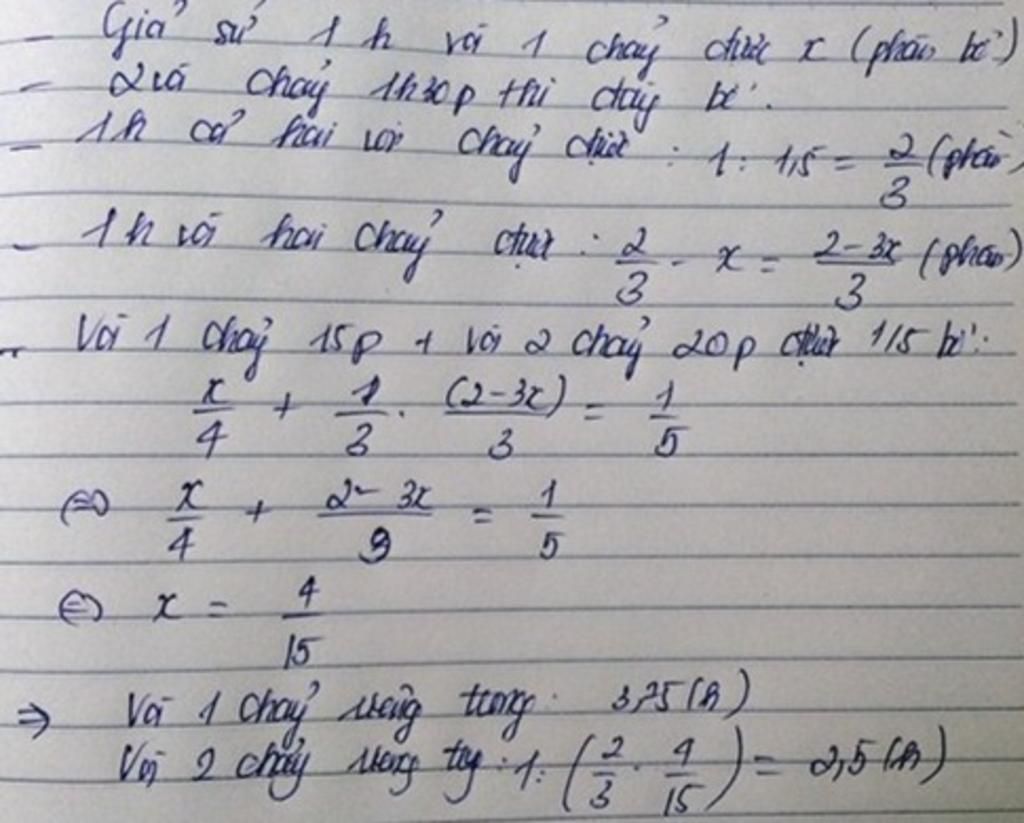 - Giả sử 1h vòi 1 chảy được x (phần bể)
- 2 vòi chảy 1h30p thì đầy bể.
- 1h cả hai vòi chảy được : 1 : 1,5 = 2/3 (phần)
- 1h vòi hai chảy được : 2/3 - x = (2-3x)/3 (phần)
- Vòi 1 chảy 15p + vòi 2 chảy 20p được 1/5 bể:
x/4 + 1/3 . (2-3x)/3 = 1/5
⇔ x/4 + (2-3x)/9 = 1/5
⇔ x = 4/15
⇒ Vòi 1 chảy riêng trong: 3,75 (h)
Vòi 2 chảy riêng tr : 1 : (2/3 - 4/15) = 2,5 (h)